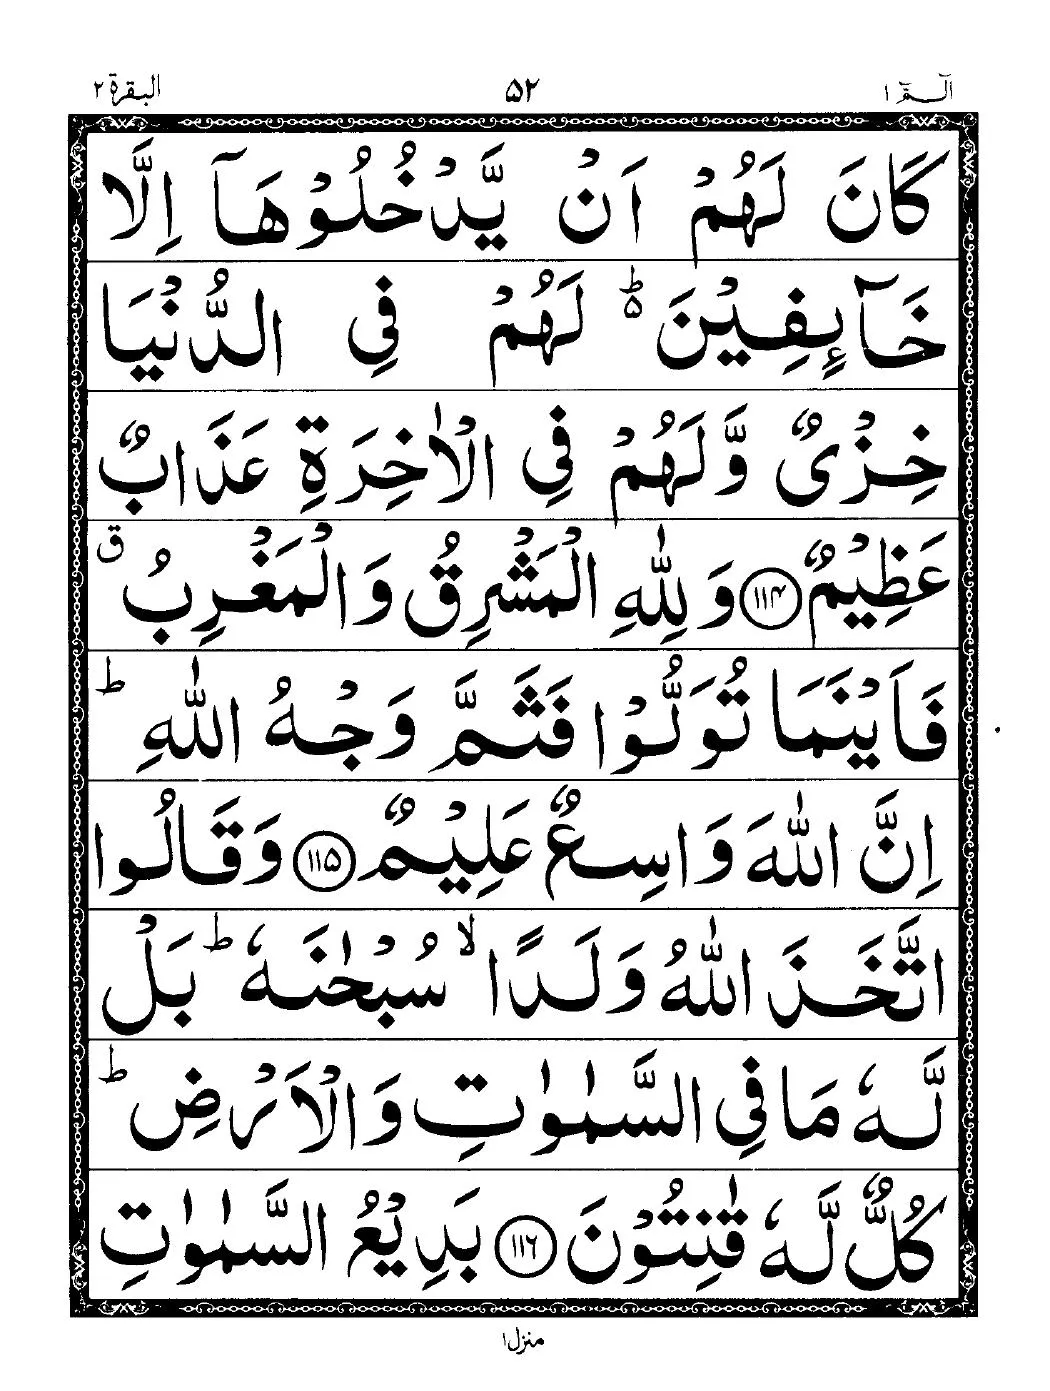 الٓـمّٓ ١ ۵۲ البقرة ۲
كَانَ لَهُمْ اَنْ يَّدْخُلُوْهَاۤ اِلَّا
خَآىِٕفِيْنَ ؕ۬ لَهُمْ فِي الدُّنْيَا
خِزْيٌ وَّ لَهُمْ فِي الْاٰخِرَةِ عَذَابٌ
عَظِيْمٌ ۝۱۱۴ وَ لِلّٰهِ الْمَشْرِقُ وَ الْمَغْرِبُ ۗ
فَاَيْنَمَا تُوَلُّوْا فَثَمَّ وَجْهُ اللّٰهِ ؕ
اِنَّ اللّٰهَ وَاسِعٌ عَلِيْمٌ ۝۱۱۵ وَ قَالُوا
اتَّخَذَ اللّٰهُ وَلَدًا ۙ سُبْحٰنَهٗ ؕ بَلْ
لَّهٗ مَا فِي السَّمٰوٰتِ وَ الْاَرْضِ ؕ
كُلٌّ لَّهٗ قٰنِتُوْنَ ۝۱۱۶ بَدِيْعُ السَّمٰوٰتِ
منزل ۱